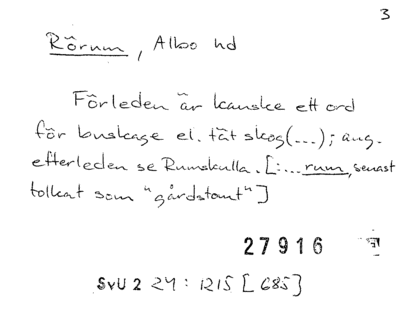 3
Rörum, Albo hd
Förleden är kanske ett ord
för buskage el. tät skog (...); ang.
efterleden se Rumskulla. [:... rum, senast
tolkat som "gårdstomt"]
27916
SvU 2 24: 1215 [685]